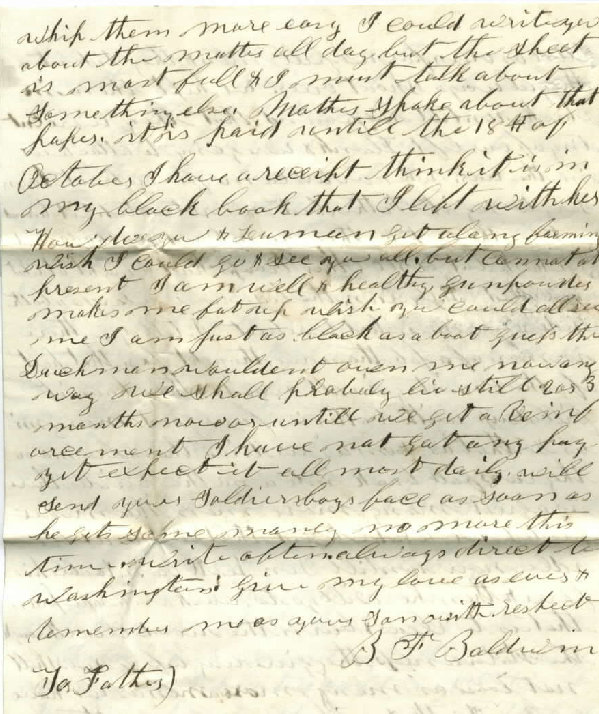 whip them more easy I could write you
about the matter all day but the sheet
is most full & I must talk about
something else. Mother spoke about that
paper. it is paid untill the 18th of
October I have a receipt think it is in
my black book that I left with her
How do you & Truman get along farming
wish I could go & see you all. but cannot at
present I am well & healthy gunpowder
makes me fat up wish you could all see
me I am just as black as a boot guess the
Duchmen wouldent own me now any
way we shall probely lie still 2 or 3
months now or untill we get a reinf
orcement I have not got any pay
yet expect it all most daily. will
send your Soldier boys face as soon as
he gets some money no more this
time write often always direct to
Washington give my love as ever &
remember me as your Son with respect
B F Baldwin
To Father)